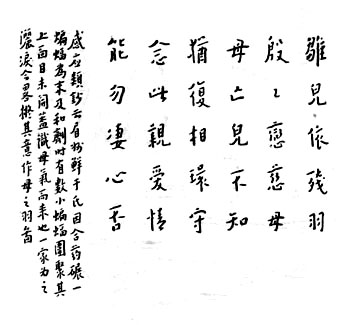 雛兒依殘羽
殷〻戀慈母
母亡兒不知
猶復相環守
念此親愛情
能勿凄心否
感應類鈔云眉州鮮于氏因合药碾一
蝙蝠為末及和劑時有數小蝙蝠圍聚其
上面目未開蓋識母氣而來也一家為之
灑淚今畧擬其意作母之羽圖